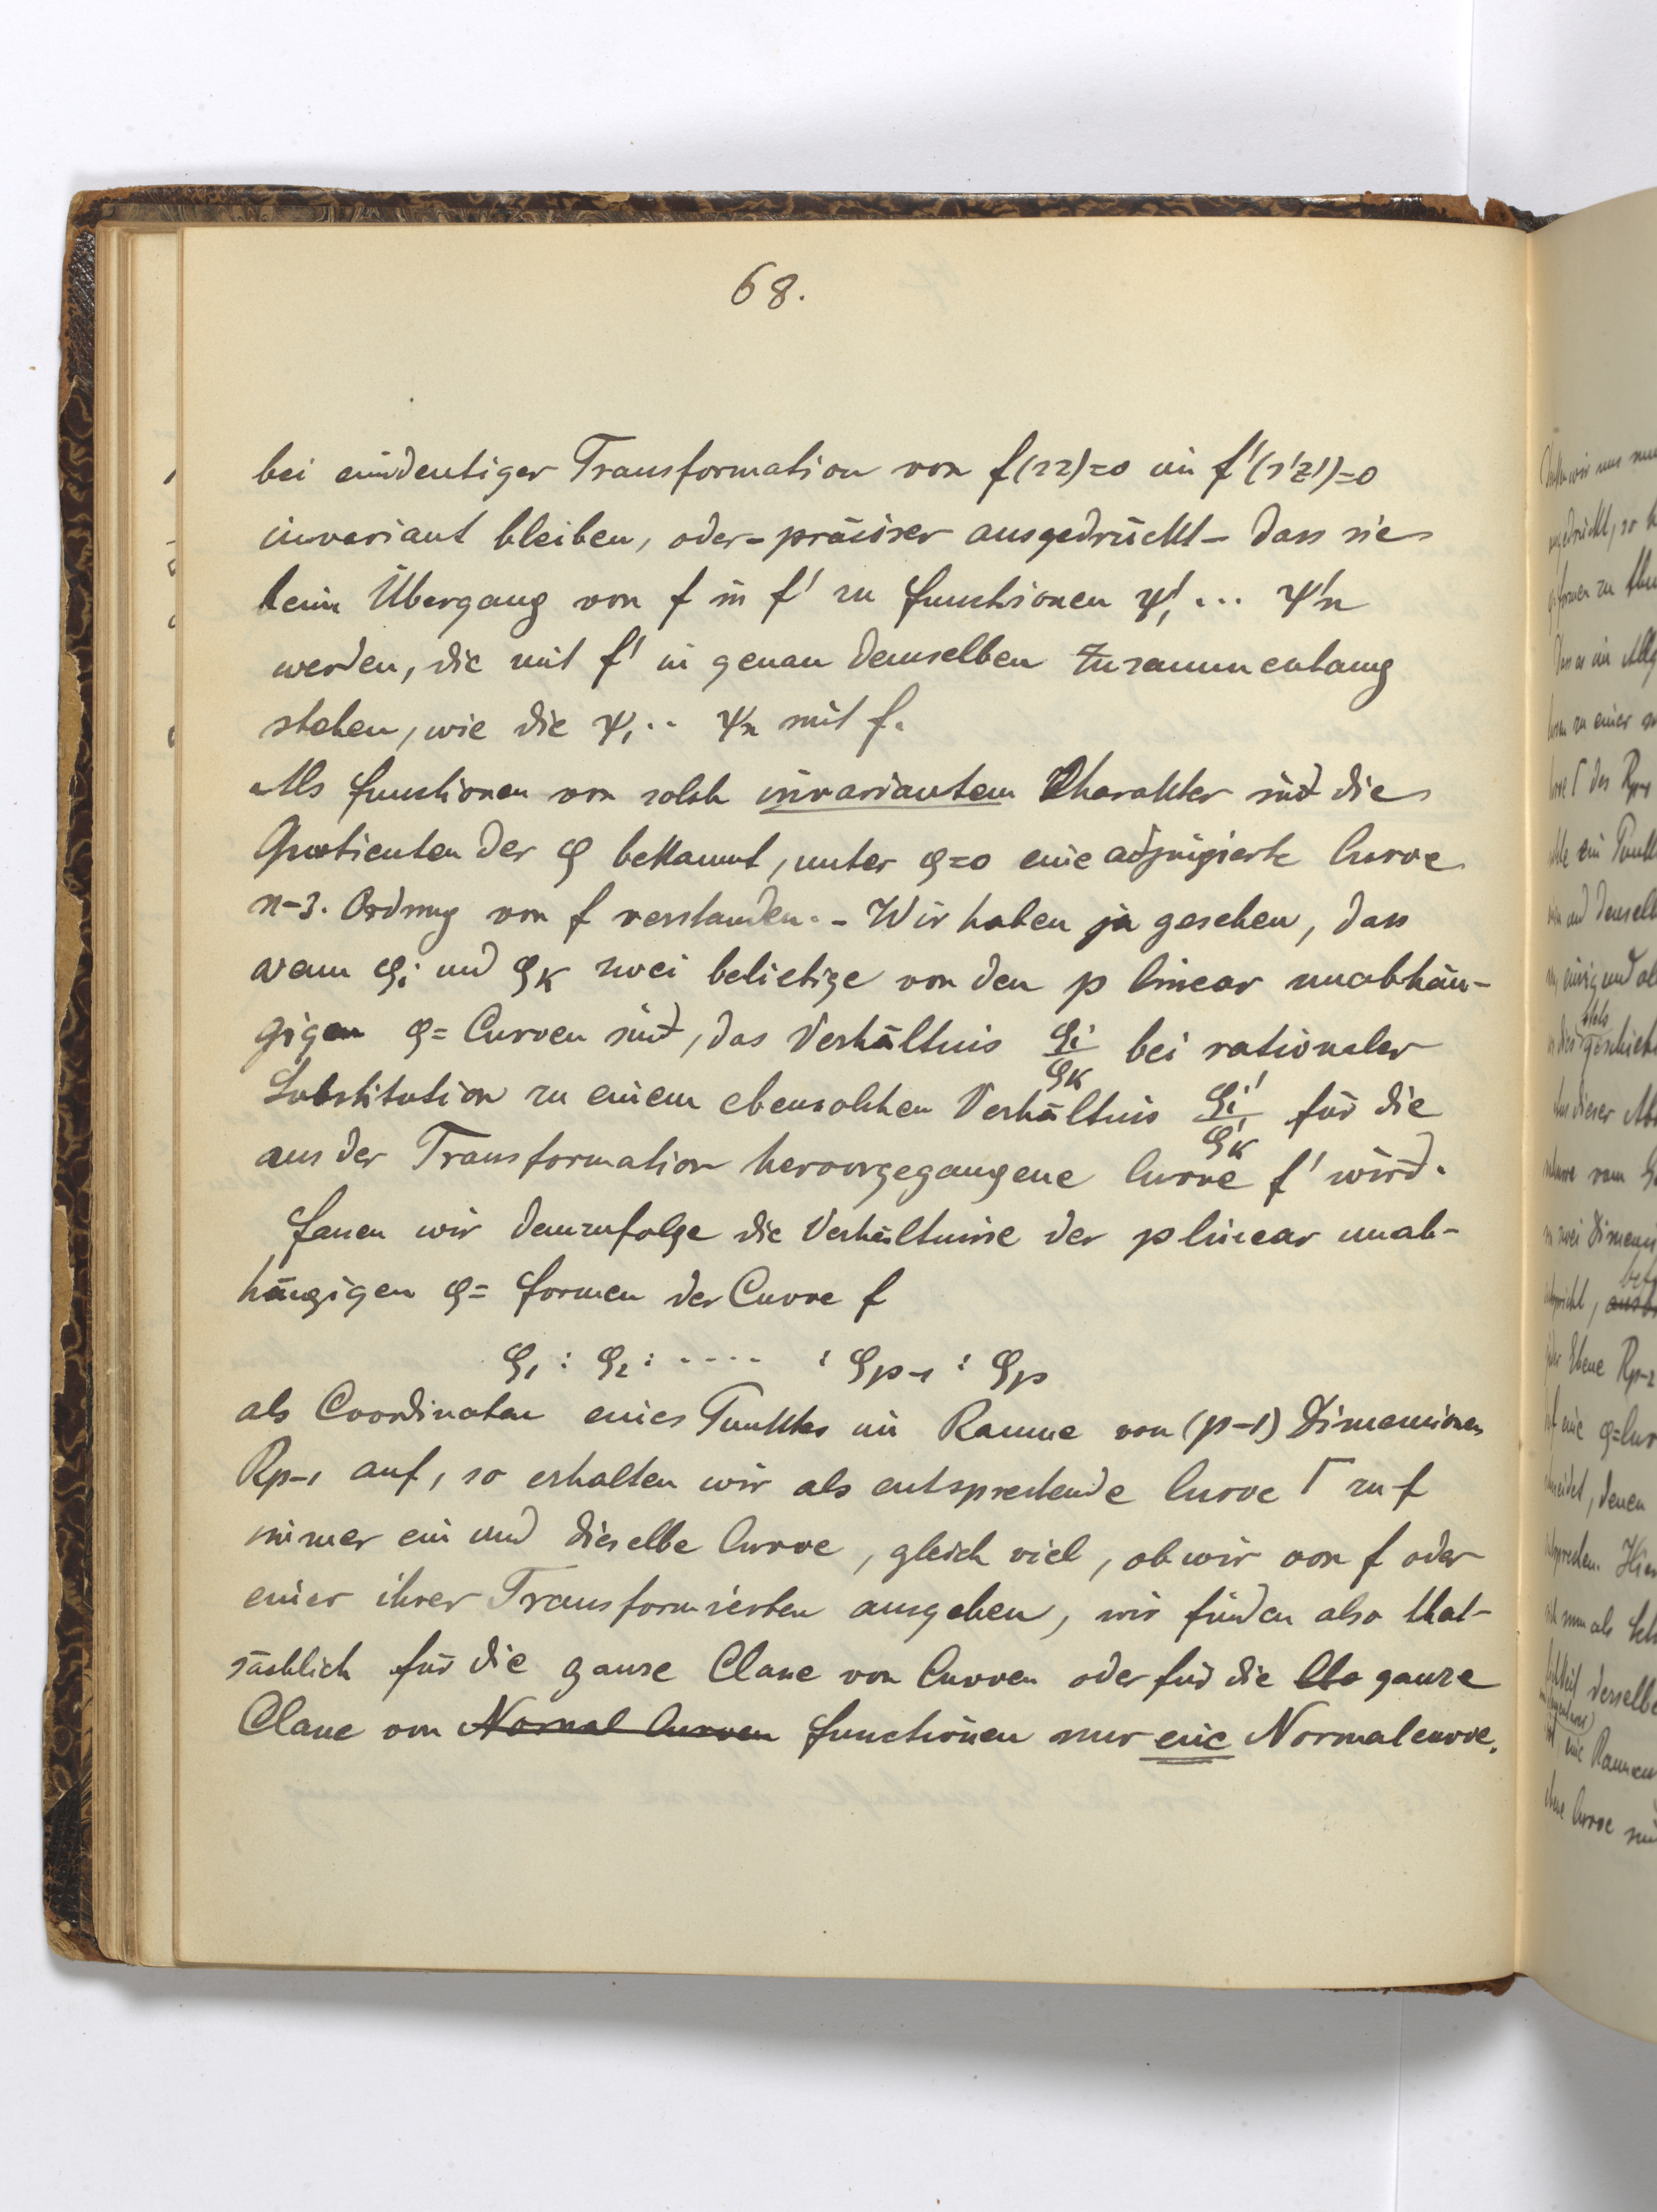 68.
bei eindeutiger Transformation von f(sz)=0 in f'(s'z')=0
invariant bleiben, oder - präciser ausgedrückt - dass sie
beim Übergang von f in f' zu functionen ψ'₁ ... ψ'n
werden, die mit f' in genau demselben Zusammenhang
stehen, wie die ψ₁ .. ψn mit f.
Als functionen von solch invariantem Charakter sind die
Quotienten der φ bekannt, unter φ=0 eine adjungierte Curve
n-3. Ordnung von f verstanden. - Wir haben ja gesehen, dass
wenn φi und φk zwei beliebige von den p linear unabhän-
gigen φ= Curven sind, das Verhältnis φi/φk bei rationaler
Substitution zu einem ebensolchen Verhältnis φi'/φ'k für die
aus der Transformation hervorgegangene Curve f' wird.
fassen wir demzufolge die Verhältnisse der p linear unab-
hängigen φ= formen der Curve f
φ₁ : φ₂ : ···· : φp-1 : φp
als Coordinaten eines Punktes im Raume von (p-1) Dimensionen
Rp-1 auf, so erhalten wir als entsprechende Curve Γ zu f
immer ein und dieselbe Curve, gleich viel, ob wir von f oder
einer ihrer Transformierten ausgehen, wir finden also that-
sächlich für die ganze Classe von Curven oder für die ganze
Classe von Normal Curven functionen nur eine Normalcurve.